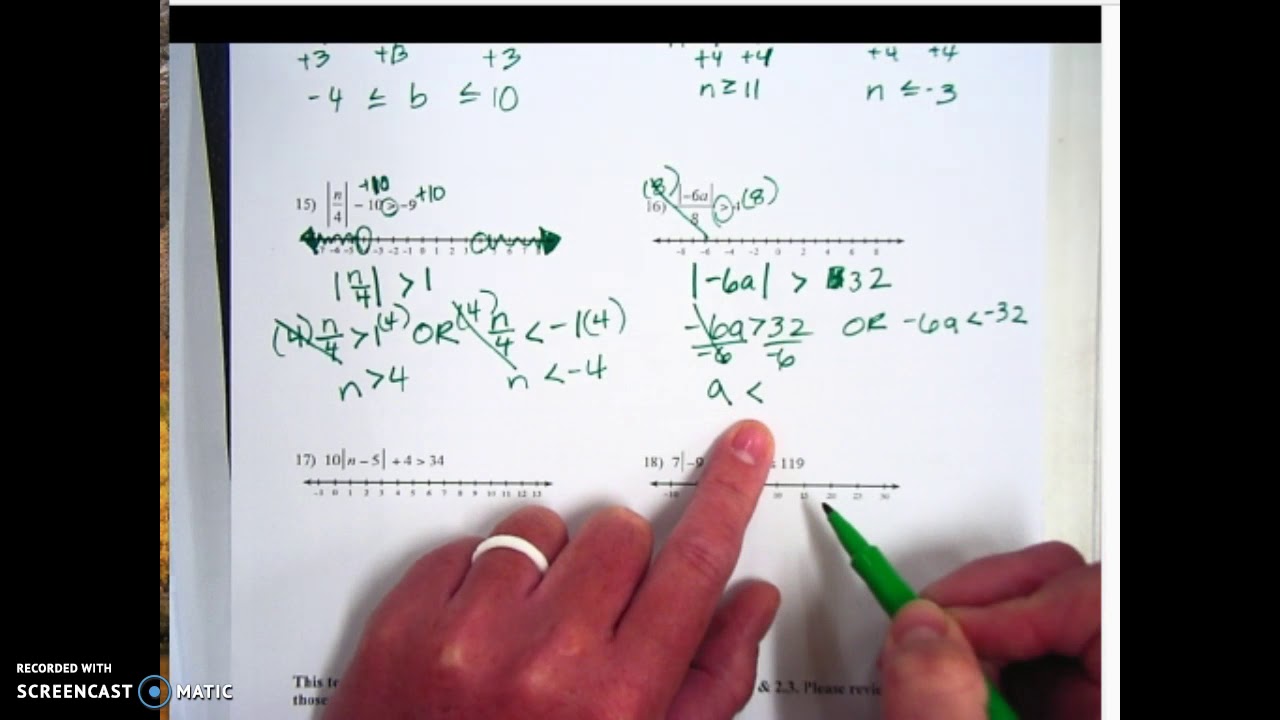 +3 +3 +3
+4 +4 +4 +4
-4 ≤ b ≤ 10
n ≥ 11 n ≤ -3
+10 +10
15) |n/4| - 10 > -9
(8) (8)
16) |-6a|/8 > 4
-7 -6 -5 -3 -2 -1 0 1 2 3 5 6 7 8
-8 -6 -4 -2 0 2 4 6 8
|n/4| > 1
|-6a| > 32
(4) n/4 > 1(4) OR (4) n/4 < -1(4)
-6a > 32 OR -6a < -32
-6 -6
n > 4 n < -4
a <
17) 10|n - 5| + 4 > 34
18) 7|-9 119
-1 0 1 2 3 4 5 6 7 8 9 10 11 12 13
-10 10 15 20 25 30
This & 2.3. Please
those
RECORDED WITH
SCREENCAST MATIC